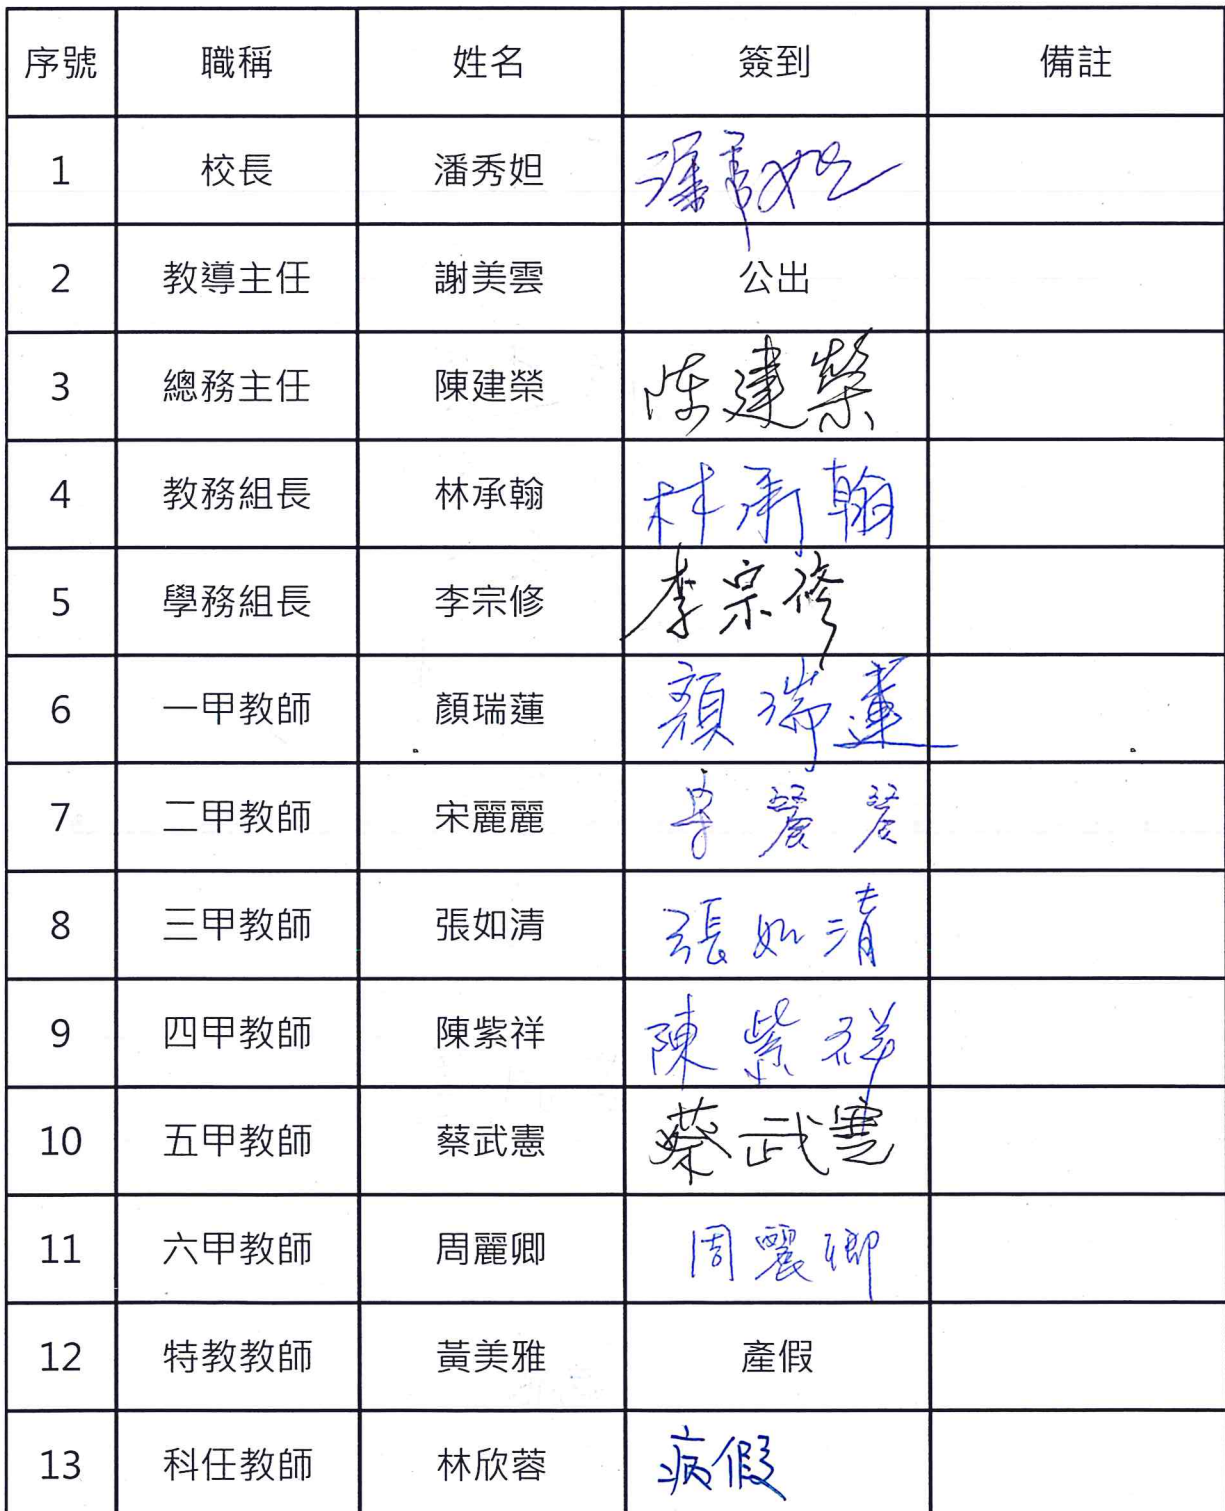 序號 職稱 姓名 簽到 備註
1 校長 潘秀妲 潘秀妲
2 教導主任 謝美雲 公出
3 總務主任 陳建榮 陈建榮
4 教務組長 林承翰 林承翰
5 學務組長 李宗修 李宗修
6 一甲教師 顏瑞蓮 顏瑞蓮
7 二甲教師 宋麗麗
8 三甲教師 張如清 張如清
9 四甲教師 陳紫祥 陳紫祥
10 五甲教師 蔡武憲 蔡武憲
11 六甲教師 周麗卿 周麗卿
12 特教教師 黃美雅 產假
13 科任教師 林欣蓉 病假